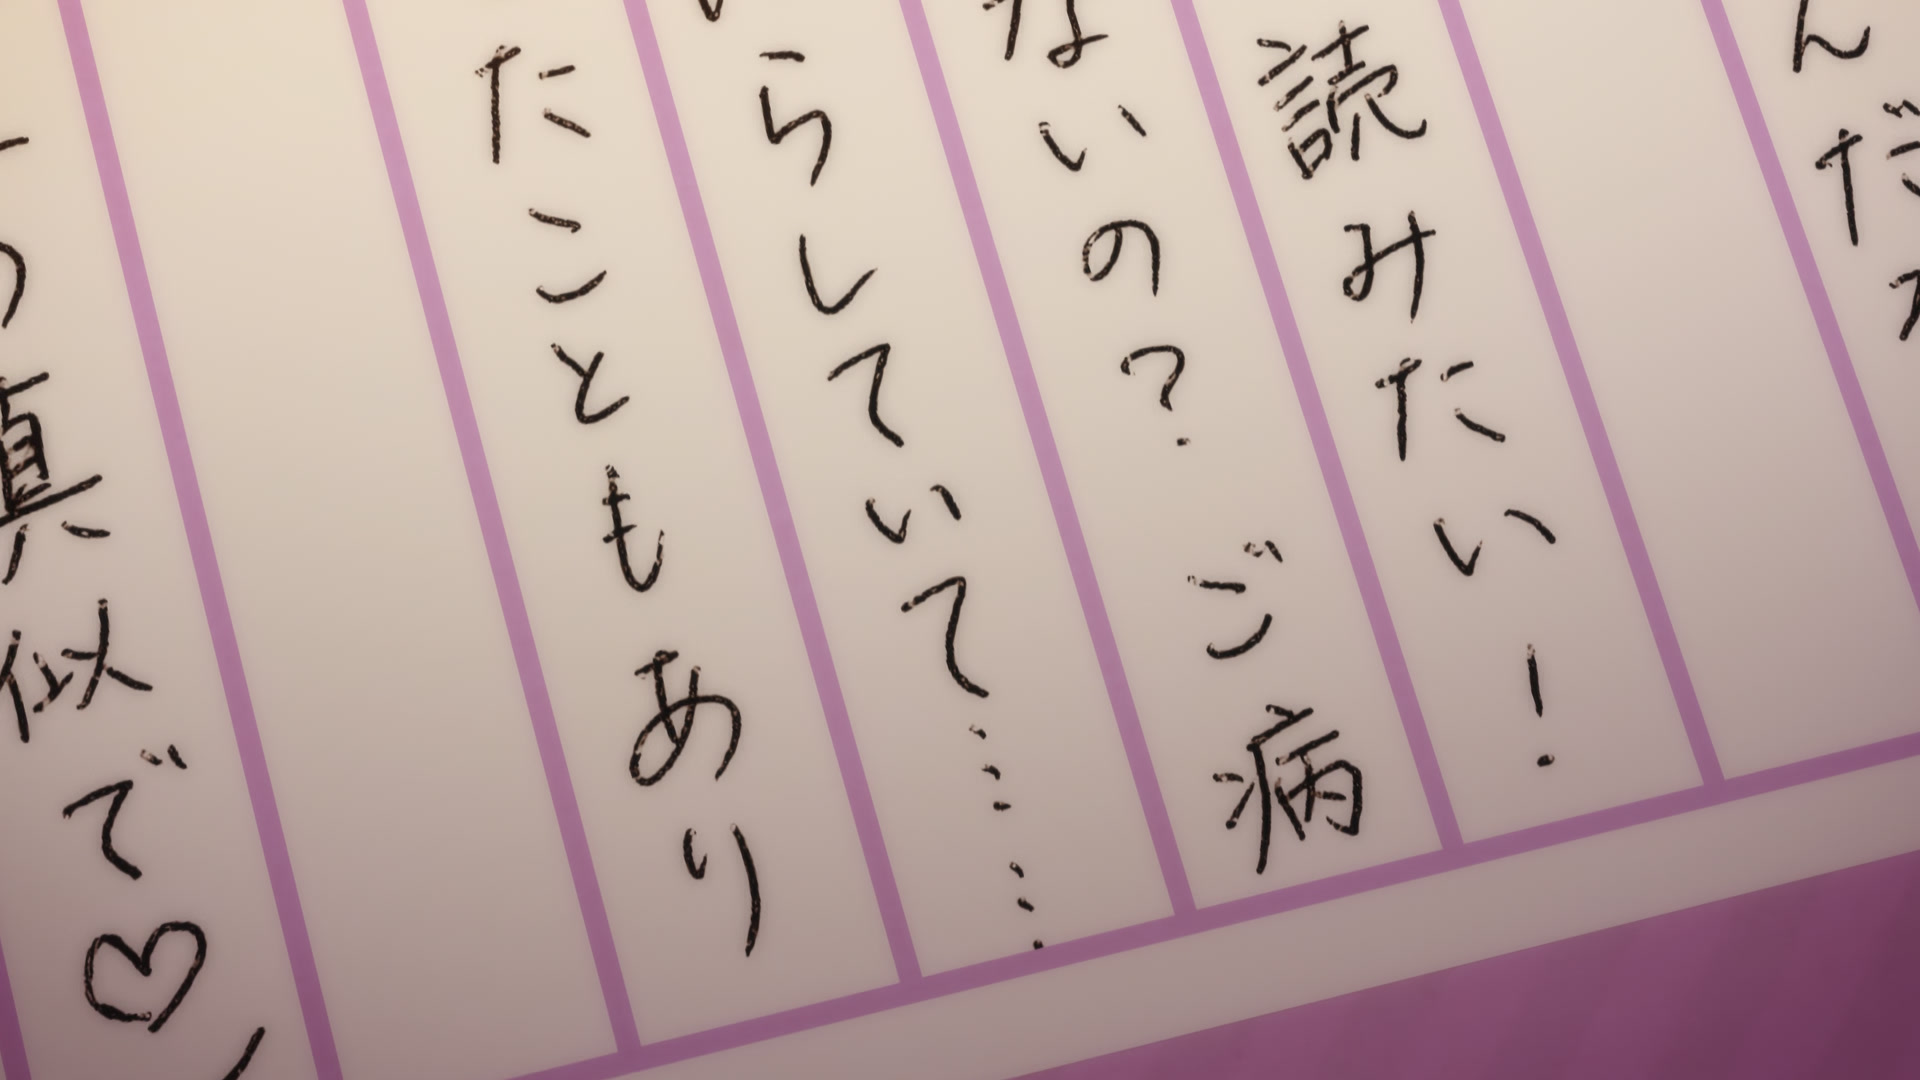 んだ
読みたい!
ないの? ご病
らしていて……
たこともあり
真似で♡